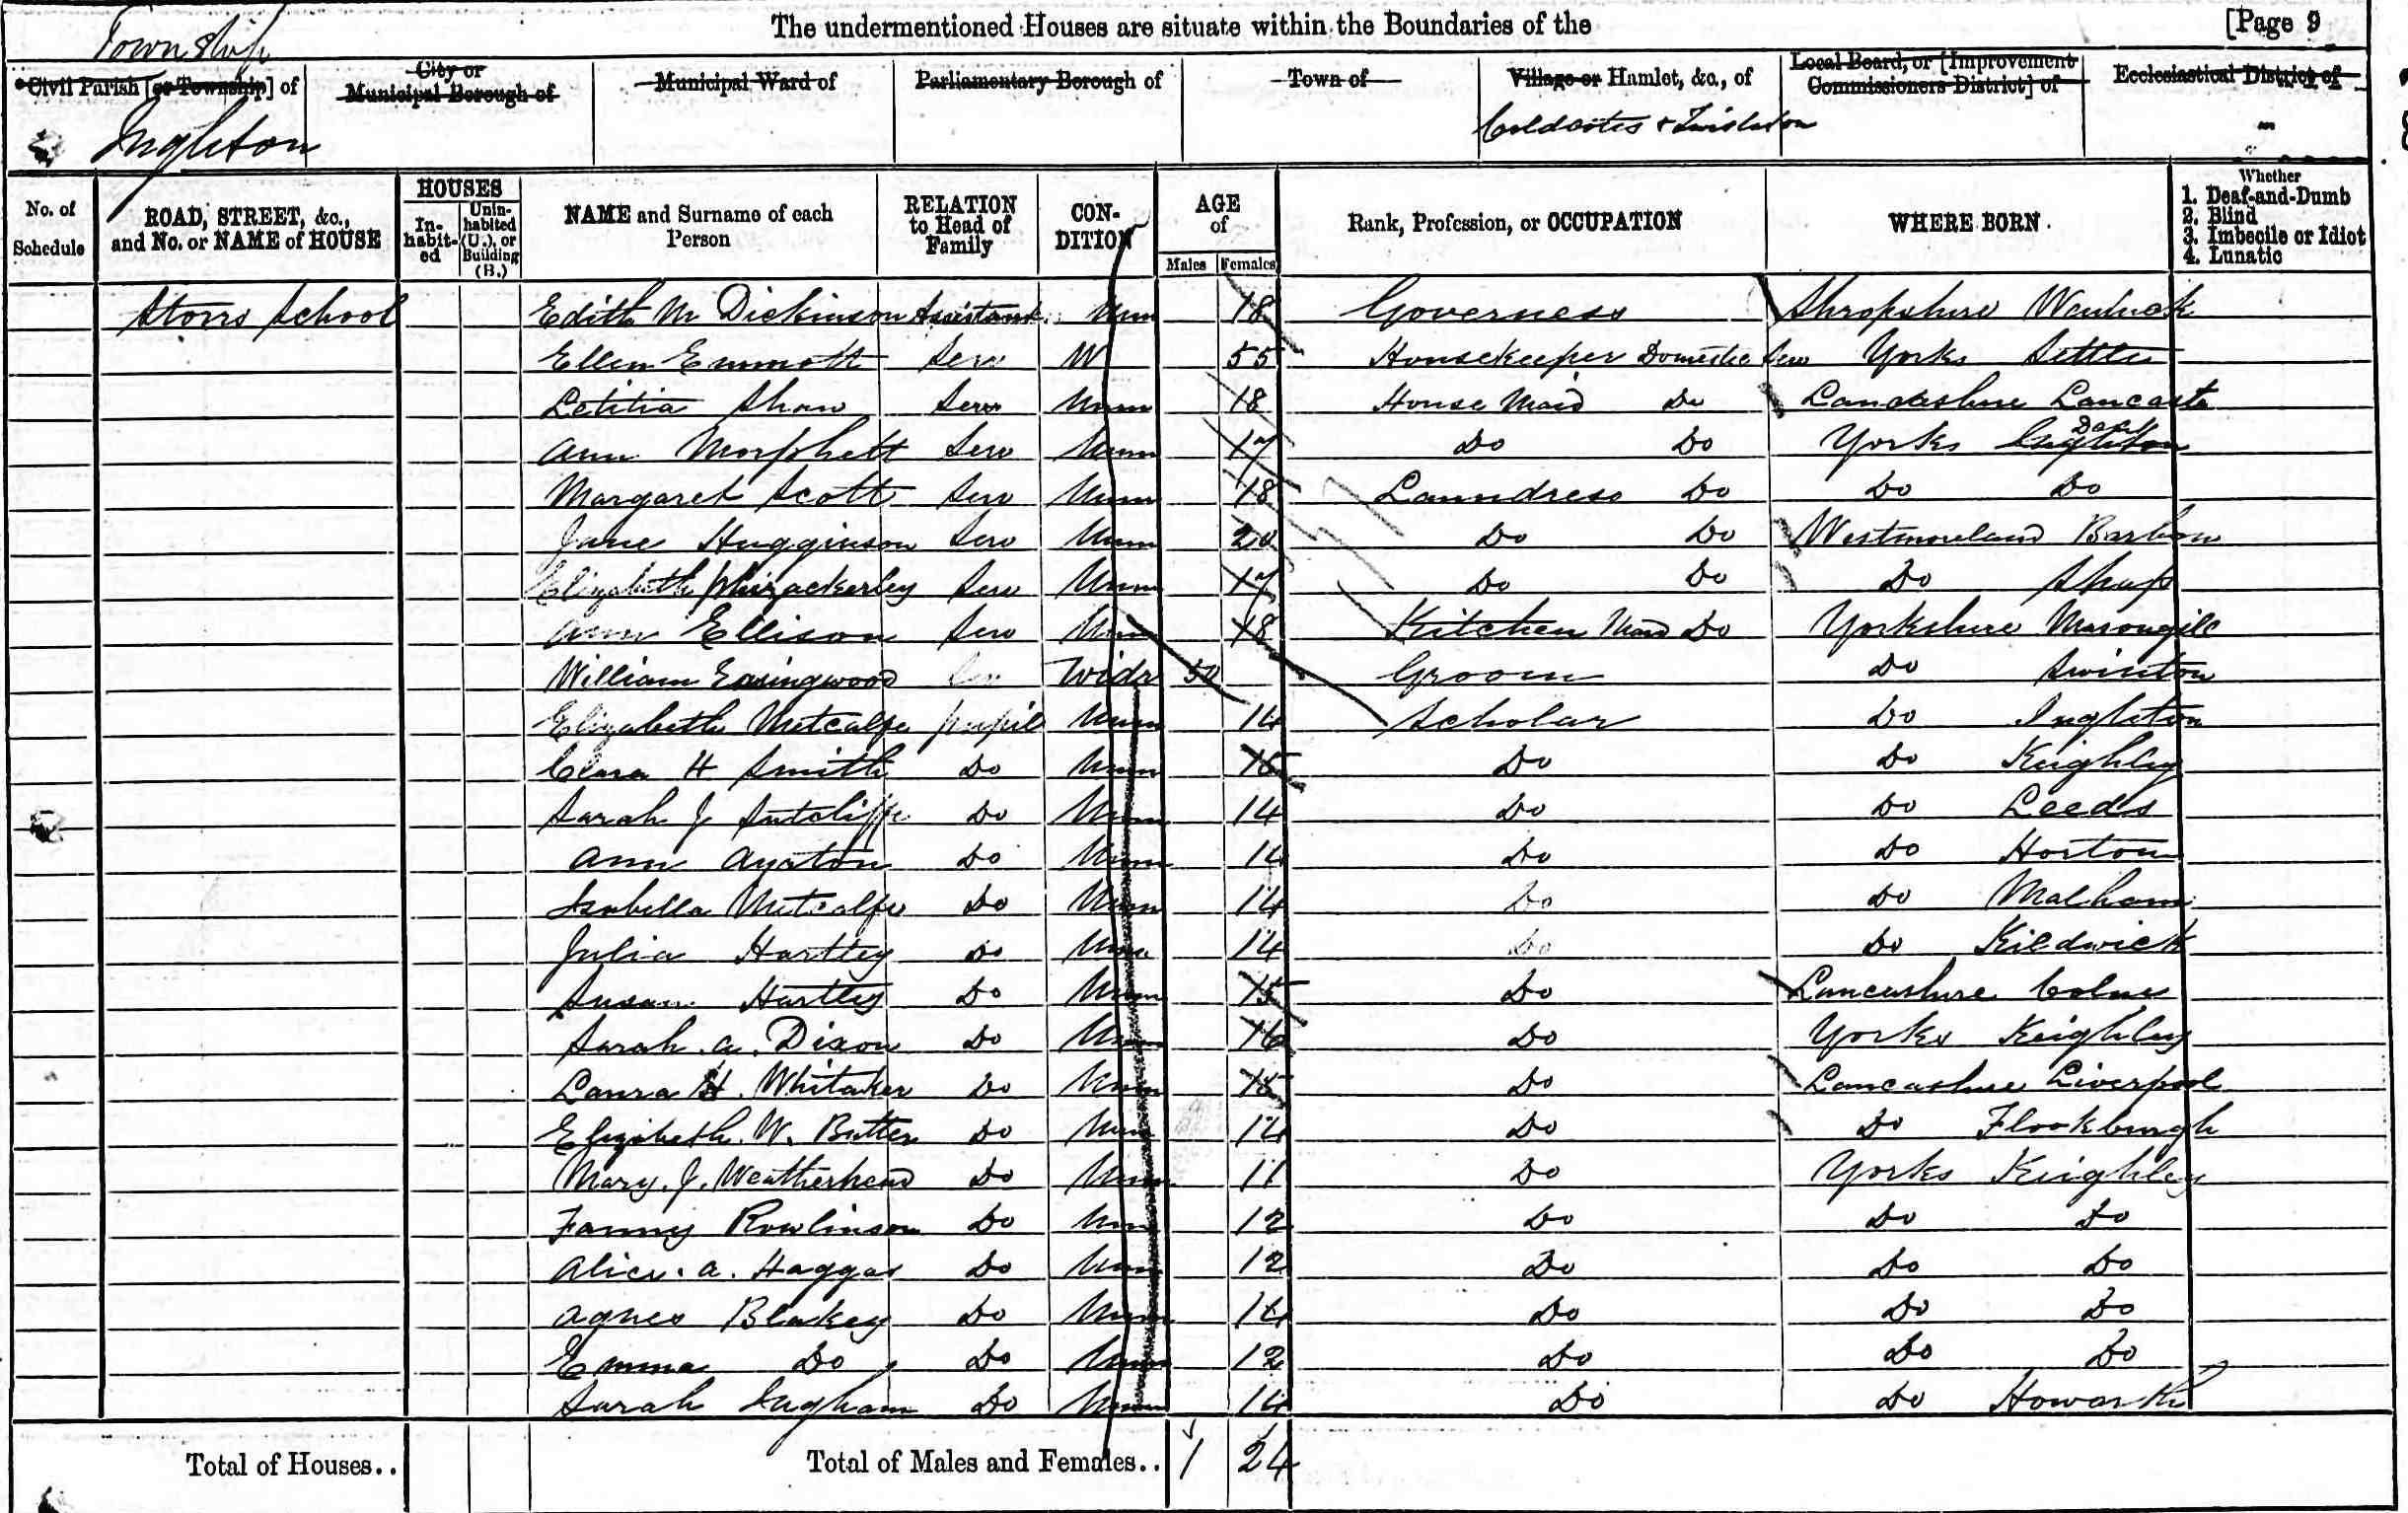 The undermentioned Houses are situate within the Boundaries of the [Page 9
Township
Civil Parish [or Township] of
City or Municipal Borough of
Municipal Ward of
Parliamentary Borough of
Town of
Village or Hamlet, &c., of
Local Board, or [Improvement Commissioners District] of
Ecclesiastical District of
Ingleton
Coldcotes & Twisleton
No. of Schedule
ROAD, STREET, &c., and No. or NAME of HOUSE
HOUSES
In-habit-ed
Unin-habited (U.), or Building (B.)
NAME and Surname of each Person
RELATION to Head of Family
CON-DITION
AGE of
Males Females
Rank, Profession, or OCCUPATION
WHERE BORN
Whether
1. Deaf-and-Dumb
2. Blind
3. Imbecile or Idiot
4. Lunatic
Storrs School Edith M Dickinson Assistant Unm 18 Governess Shropshire
Ellen Emmott Serv W 55 Housekeeper Domestic Serv Yorks Settle
Letitia Shaw Serv Unm 18 House Maid Do Lancashire Lancaster
Ann Morphett Serv Unm 17 Do Do Yorks Ingleton
Margaret Scott Serv Unm 18 Laundress Do Do Do
Jane Hugginson Serv Unm 20 Do Do Westmoreland Barbon
Elizabeth Whizackerley Serv Unm 17 Do Do Do Shap
Ann Ellison Serv Unm 18 Kitchen Maid Do Yorkshire Masongill
William Easingwood Widr 50 Groom Do Swinton
Elizabeth Metcalfe pupil Unm 14 Scholar Do Ingleton
Clara H Smith Do Unm 15 Do Do Keighley
Sarah J Sutcliffe Do Unm 14 Do Do Leeds
Ann Ayrton Do Unm 14 Do Do Horton
Isabella Metcalfe Do Unm 14 Do Do Malham
Julia Hartley Do Unm 14 Do Do Kildwick
Susan Hartley Do Unm 15 Do Lancashire Colne
Sarah. A. Dixon Do Unm 16 Do Yorks Keighley
Laura H. Whitaker Do Unm 15 Do Lancashire Liverpool
Elizabeth. W. Butler Do Unm 14 Do Do Flookburgh
Mary. J. Weatherhead Do Unm 11 Do Yorks Keighley
Fanny Rowlinson Do Unm 12 Do Do Do
Alice. A. Haggas Do Unm 12 Do Do Do
Agnes Blakey Do Unm 14 Do Do Do
Emma Do Do Unm 12 Do Do Do
Sarah Ingham Do Unm 14 Do Do Howarth
Total of Houses..
Total of Males and Females.. 1 24